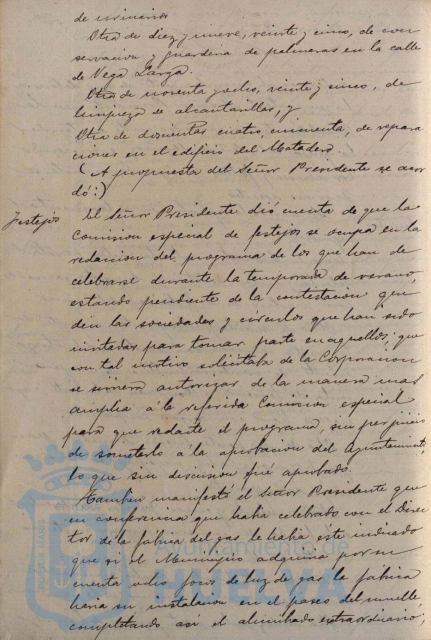 de urinarios
Otra de diez y nueve, veinte y cinco, de con
servacion y guarderia de palmeras en la calle
de Vega Larga.
Otra de noventa y ocho, veinte y cinco, de
limpieza de alcantarillas, y
Otra de doscientas cuatro, cincuenta, de repara
ciones en el edificio del Matadero.
(A propuesta del Señor Presidente se acor
dó:)
Festejos
El Señor Presidente dió cuenta de que la
Comision especial de festejos se ocupa en la
redaccion del programa de los que han de
celebrarse durante la temporada de verano,
estando pendiente de la contestacion que
den las sociedades y circulos que han sido
invitadas para tomar parte en aquellos; que
con tal motivo solicitaba de la Corporacion
se sirviera autorizar de la manera mas
amplia á la referida Comision especial
para que redacte el programa, sin perjuicio
de someterlo á la aprobacion del Ayuntamiento,
lo que sin discusion fué aprobado.
Tambien manifestó el Señor Presidente que
en conferencia que habia celebrado con el Direc
tor de la fábrica del gas le habia este indicado
que si el Municipio adquiria por su
cuenta ocho focos de luz de gas la fábrica
haria su instalacion en el paseo del muelle,
completando asi el alumbrado extraordinario,
Ayuntamiento de
HUELVA